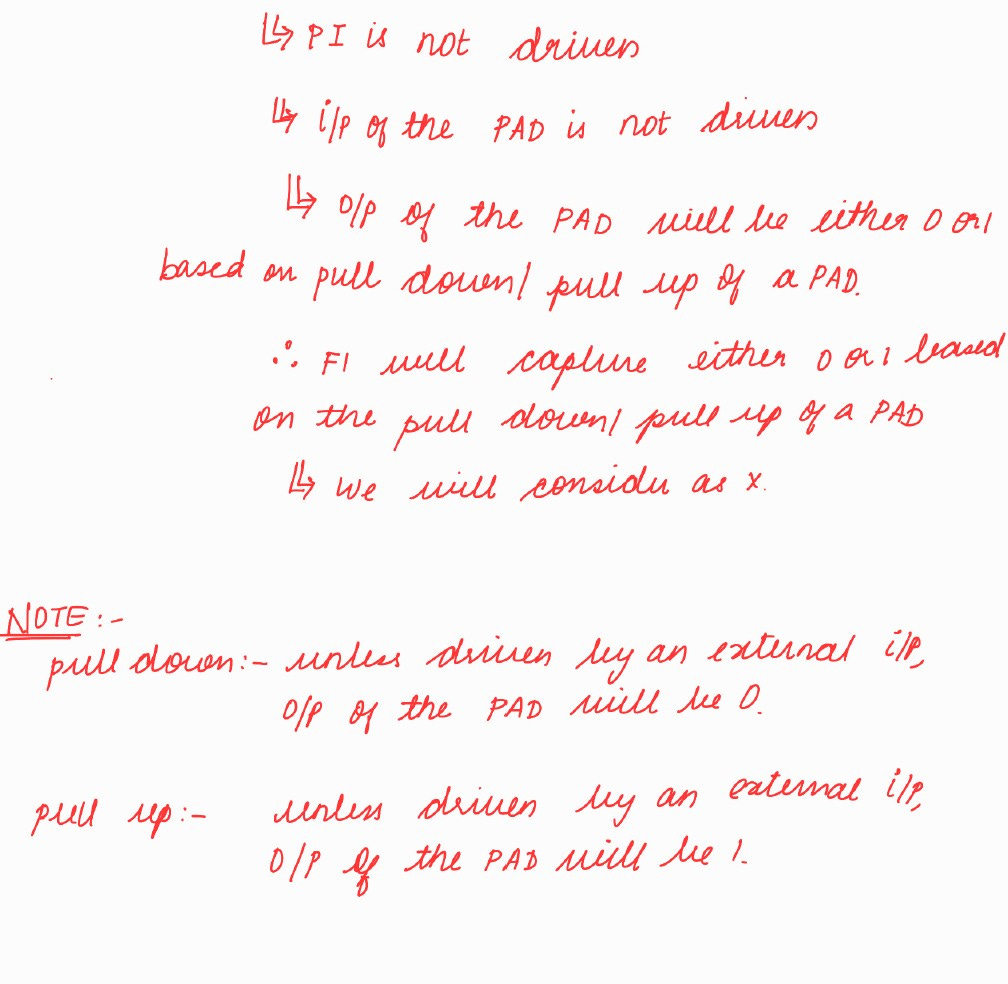 ↳ PI is not driven
↳ i/p of the PAD is not driven
↳ O/P of the PAD will be either 0 or 1
based on pull down/ pull up of a PAD.
∴ F1 will capture either 0 or 1 based
on the pull down/ pull up of a PAD
↳ We will consider as x.
NOTE:-
pull down:- unless driven by an external i/p,
O/p of the PAD will be 0.
pull up:- unless driven by an external i/p,
O/p of the PAD will be 1.